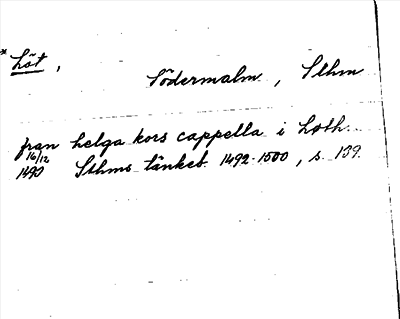 * Löt,
Södermalm, Sthm
från helga kors cappella i Løth.
16/12
1490 Sthms tänkeb. 1492-1500, s. 139.